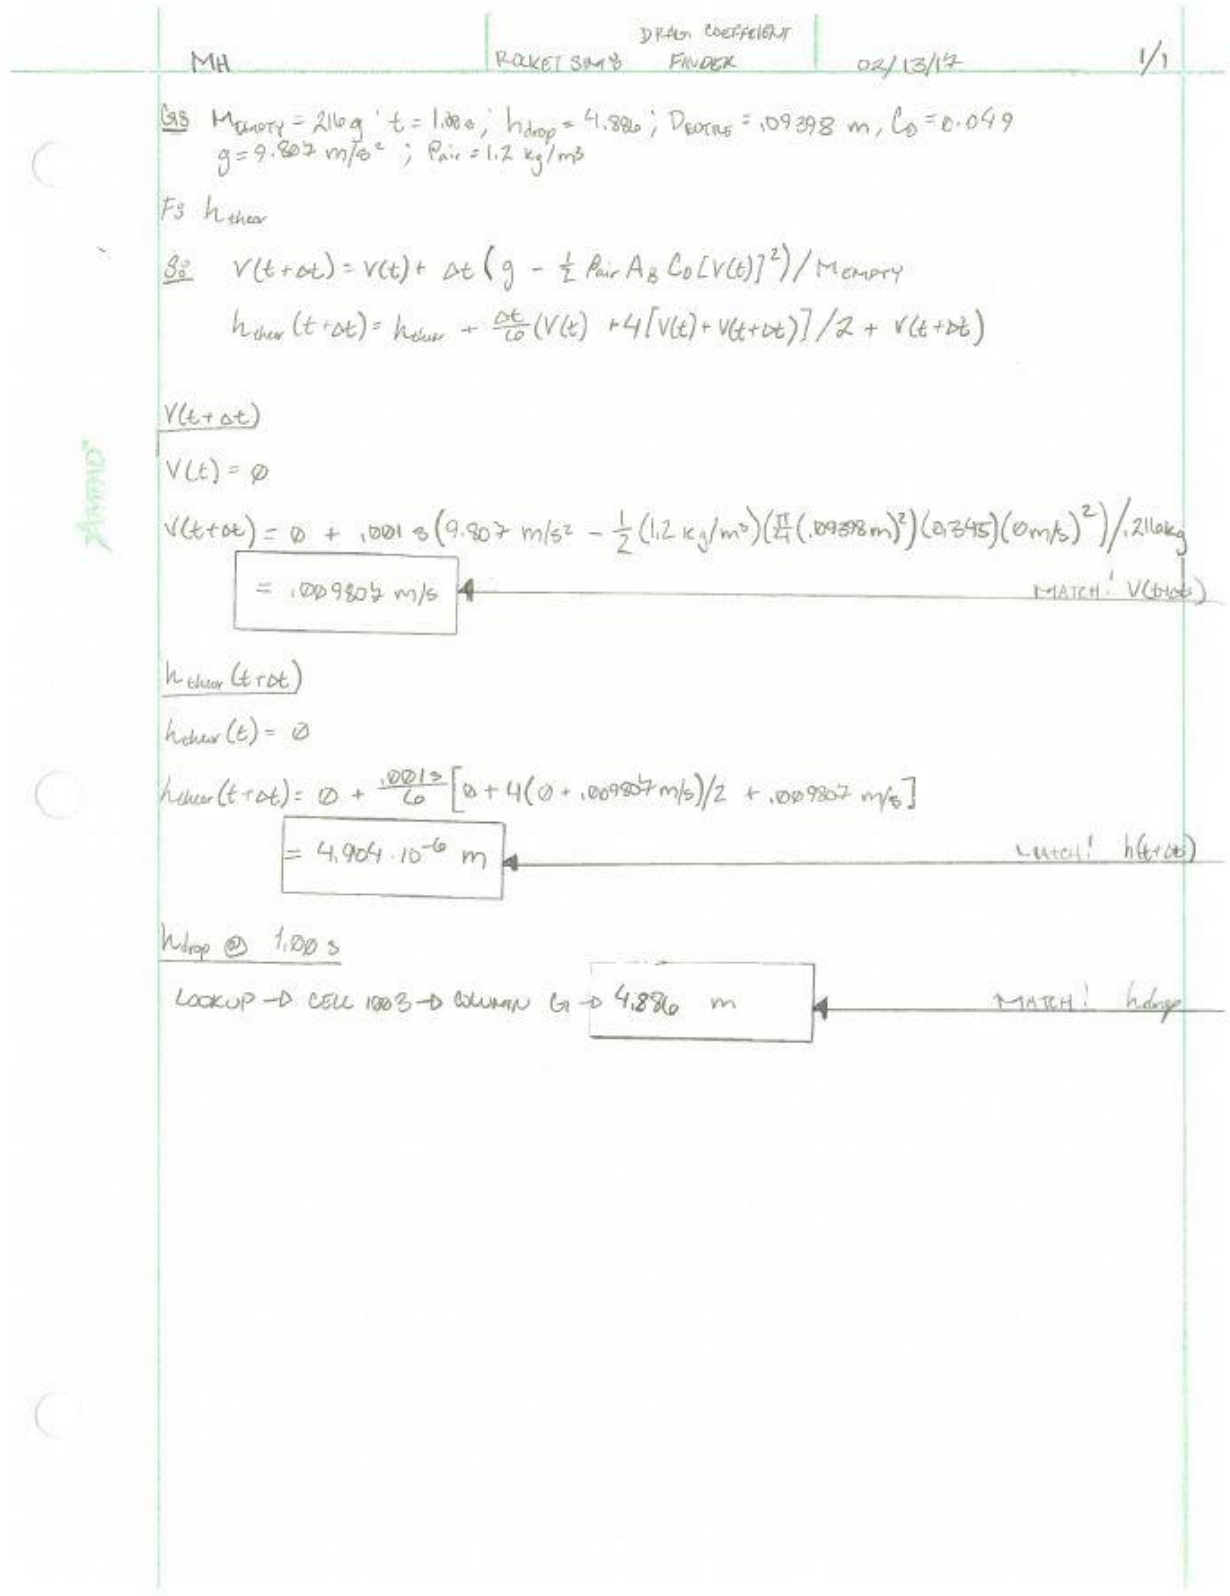 DRAG COEFFICIENT
MH ROCKET SIMS FINDER 02/13/17 1/1
G: M_EMPTY = 216g ; t = 1.00s ; h_drop = 4.886 ; D_BOTTLE = .09398 m, C_D = 0.049
g = 9.807 m/s² ; ρ_air = 1.2 kg/m³
F: h_theor
S: V(t+Δt) = V(t) + Δt (g - ½ ρ_air A_B C_D [V(t)]²)/M_EMPTY
h_theor (t+Δt) = h_theor + Δt/6 (V(t) + 4[V(t) + V(t+Δt)]/2 + V(t+Δt)
V(t+Δt)
V(t) = Ø
V(t+Δt) = Ø + .001 s (9.807 m/s² - 1/2 (1.2 kg/m³)(π/4 (.09398m)²)(0.345)(0m/s)²)/.216kg
= .009807 m/s MATCH! V(t+Δt)
h_theor (t+Δt)
h_theor (t) = Ø
h_theor (t+Δt) = Ø + .001s/6 [Ø + 4(Ø + .009807 m/s)/2 + .009807 m/s]
= 4.904·10⁻⁶ m MATCH! h(t+Δt)
h_drop @ 1.00 s
LOOKUP → CELL 1003 → COLUMN G → 4.886 m MATCH! h_drop
AMPAD